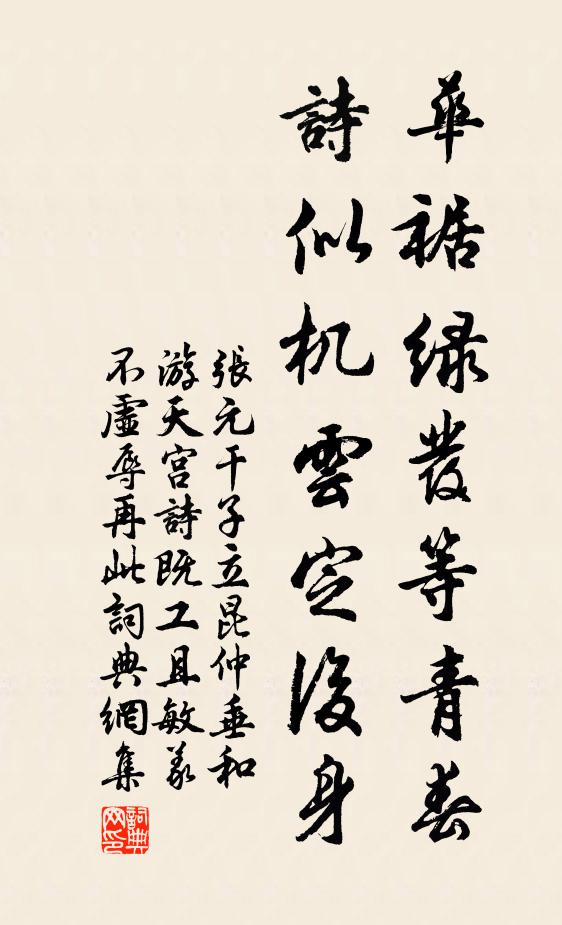 華裾綠發等青春
詩似机雲定後身
張元干子立昆仲垂和
游天宫詩既工且敏義
不虛辱再此詞典網集
詞典
网印